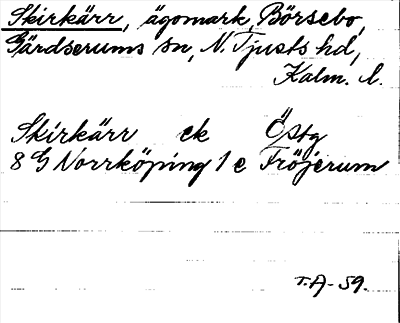 Skirkärr, ägomark, Börsebo,
Gärdserums sn, N. Tjusts hd,
Kalm. l.
Skirkärr ek Östg
8 G Norrköping 1 e Fröjerum
T.A-59.